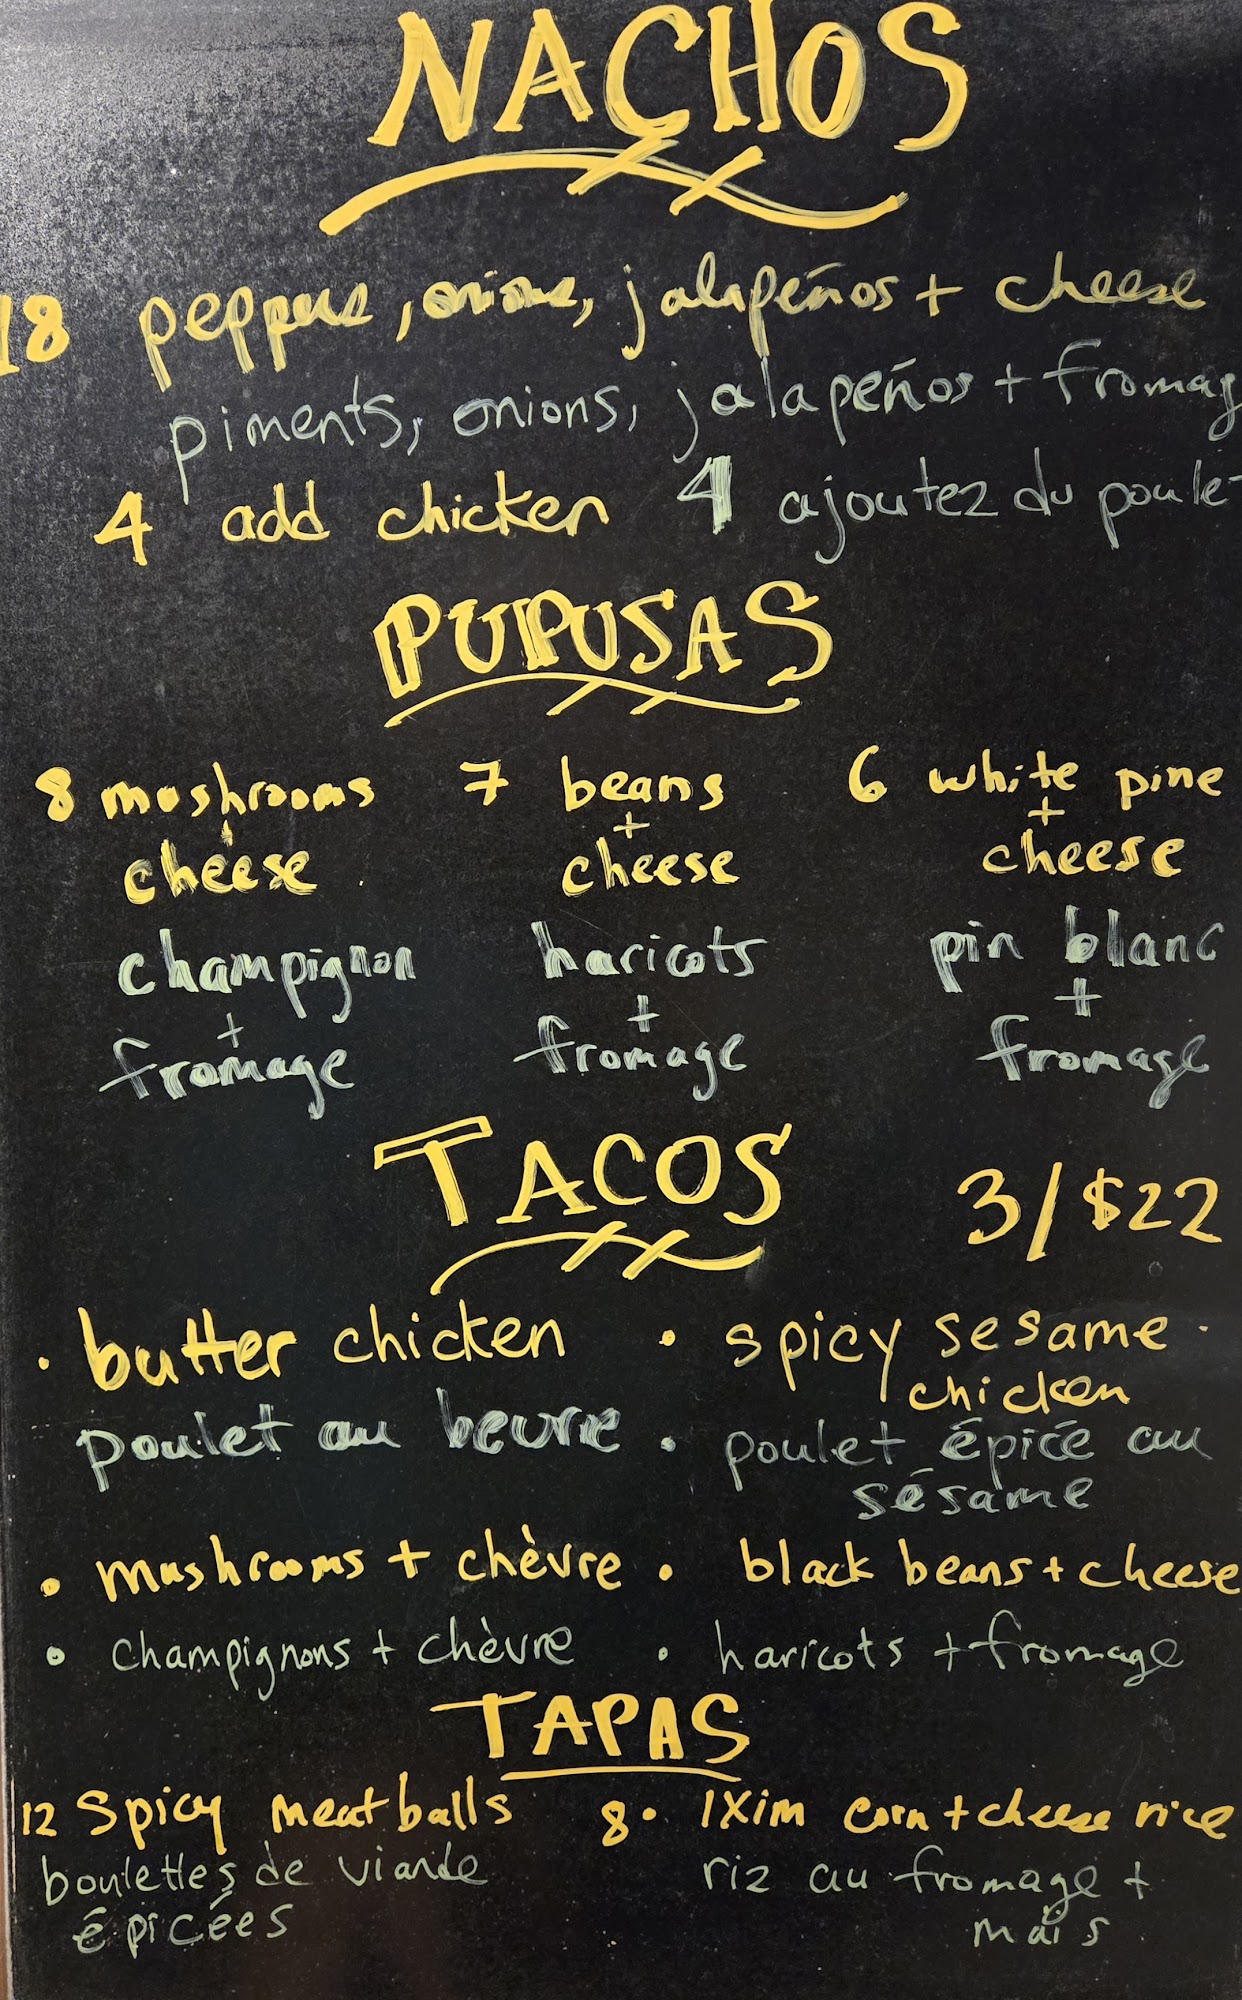 NACHOS
18 peppers, onions, jalapeños + cheese
piments, onions, jalapeños + fromag
4 add chicken 4 ajoutez du poulet
PUPUSAS
8 mushrooms 7 beans 6 white pine
+ + +
cheese cheese cheese
champignon haricots pin blanc
+ + +
fromage fromage fromage
TACOS
3/$22
• butter chicken • spicy sesame •
chicken
poulet au beurre • poulet épicé au
sésame
• mushrooms + chèvre • black beans + cheese
• champignons + chèvre • haricots + fromage
TAPAS
12 Spicy meatballs 8• IXim corn + cheese rice
boulettes de viande riz au fromage +
épicées maïs